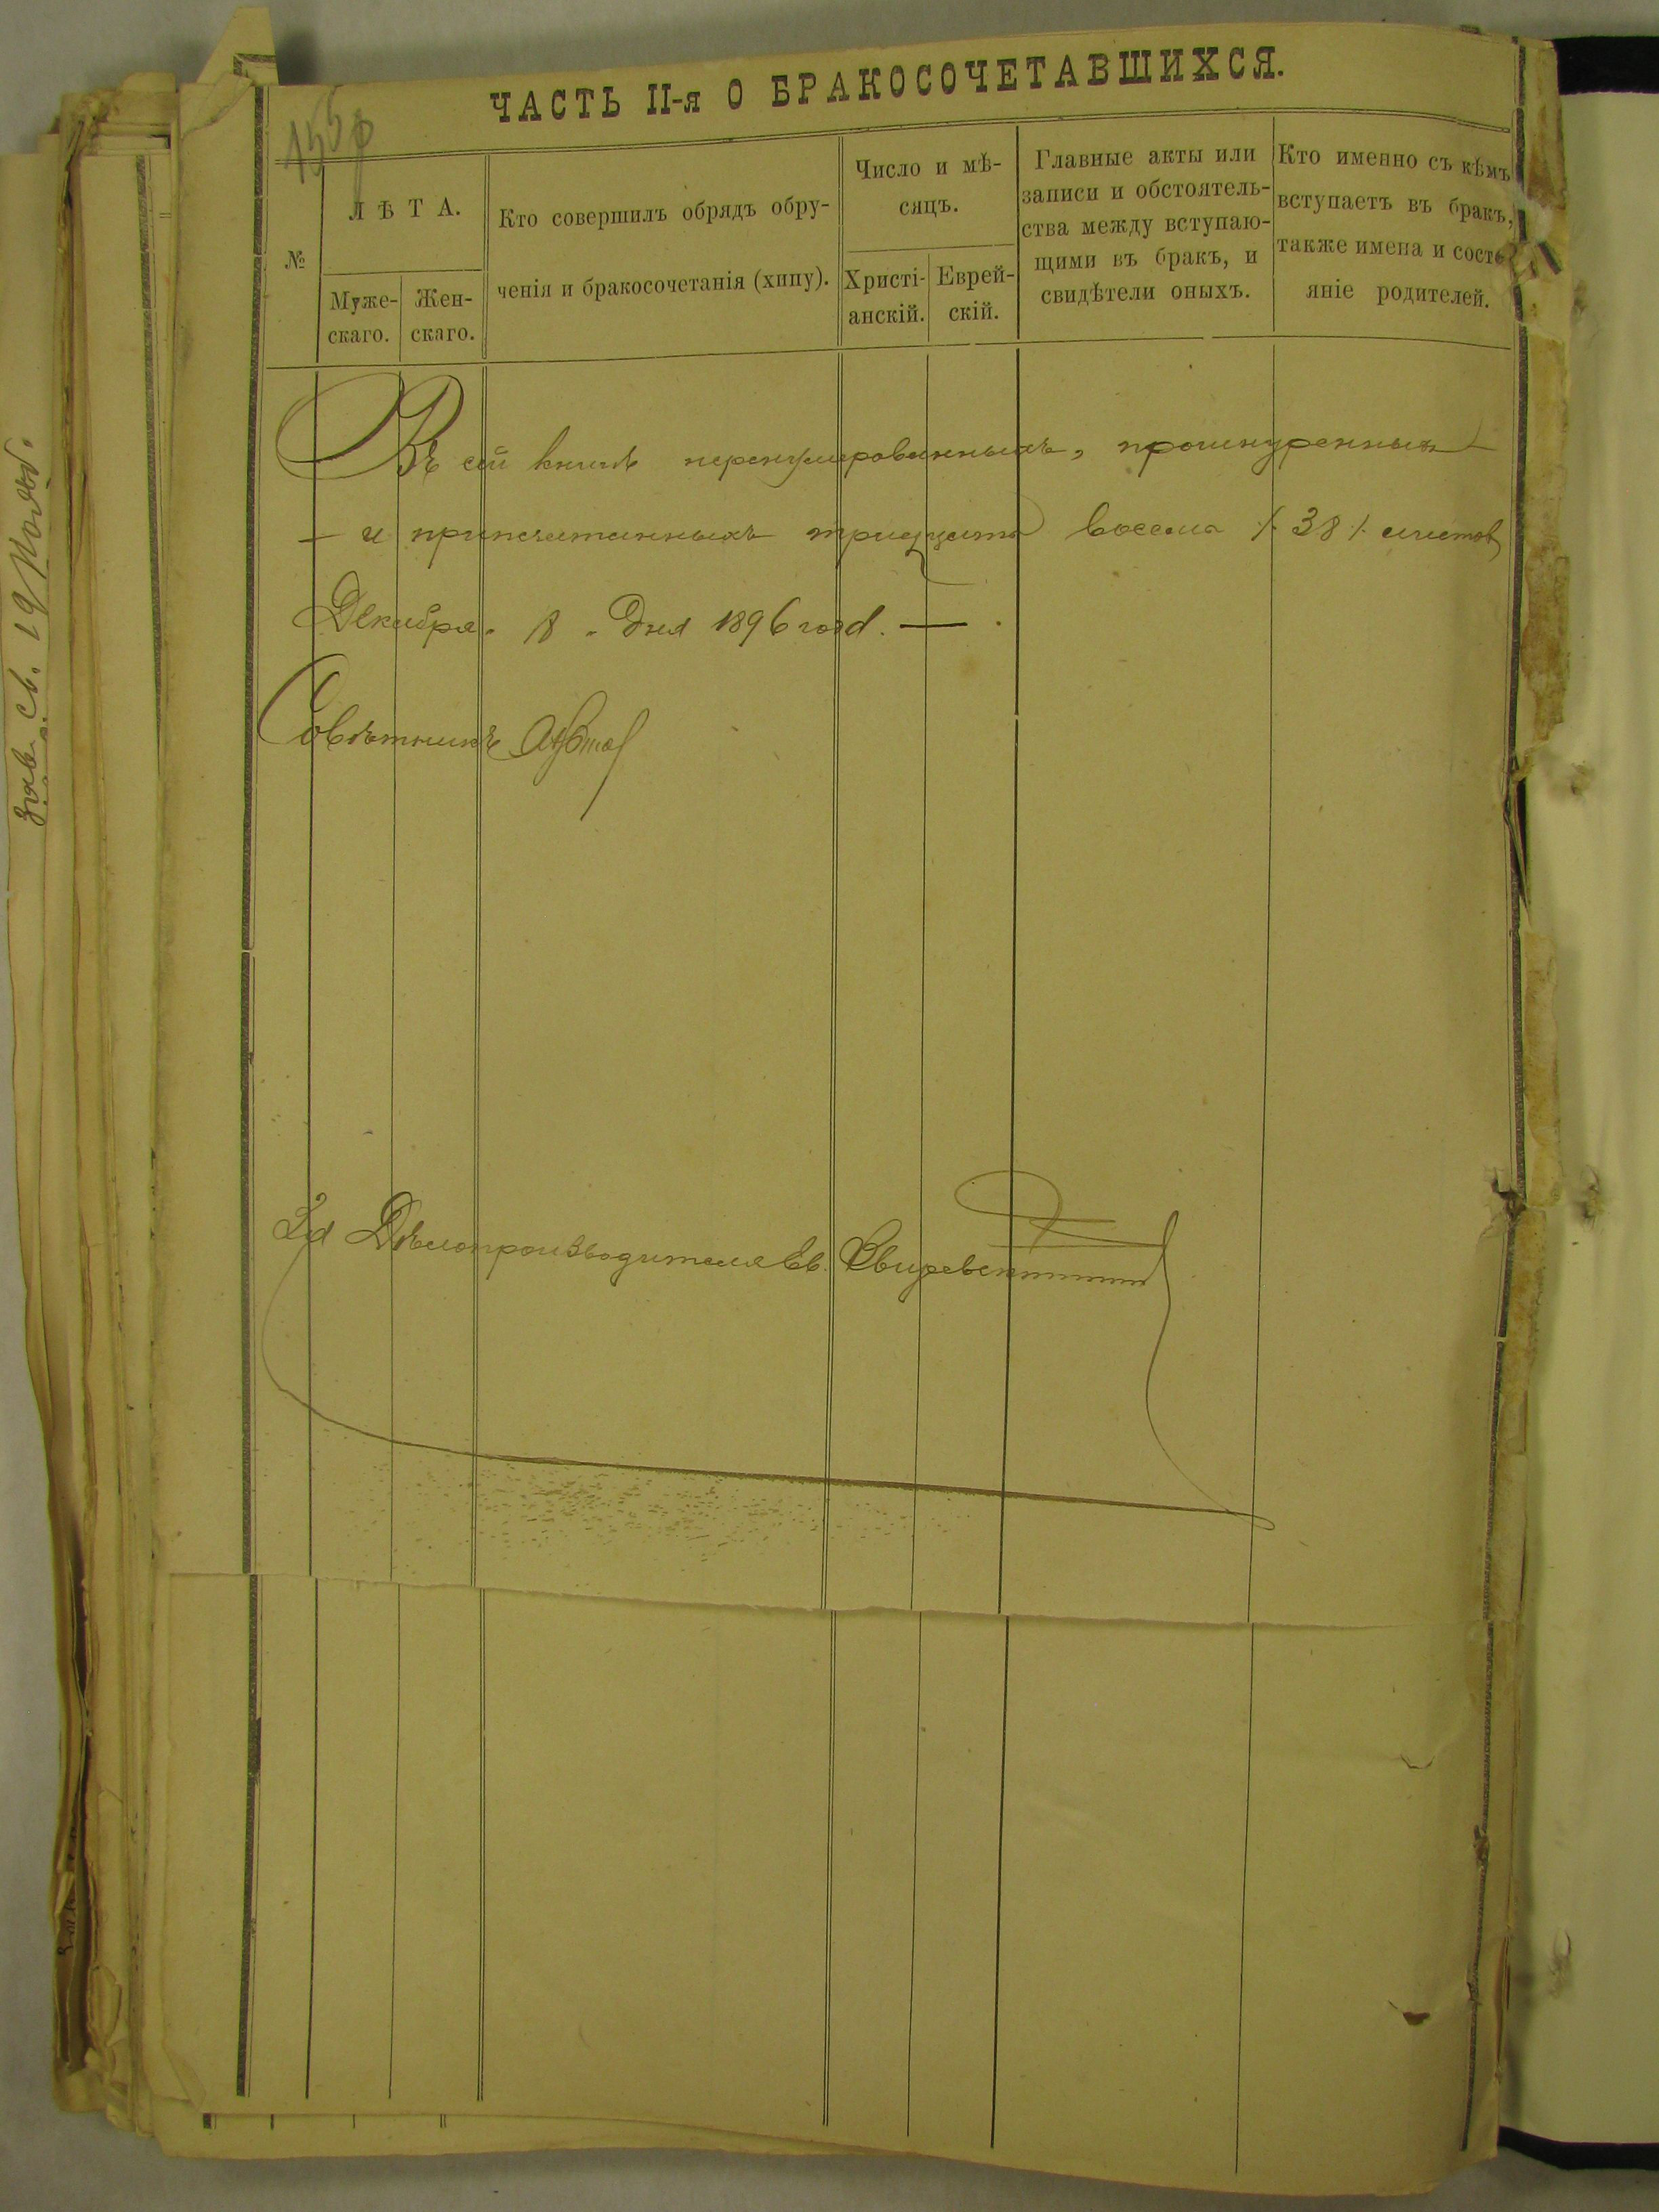 ЧАСТЬ II-я О БРАКОСОЧЕТАВШИХСЯ.
№
ЛѢТА.
Муже-
скаго.
Жен-
скаго.
Кто совершилъ обрядъ обру-
ченія и бракосочетанія (хипу).
Число и мѣ-
сяцъ.
Христі-
анскій.
Еврей-
скій.
Главные акты или
записи и обстоятель-
ства между вступаю-
щими въ бракъ, и
свидѣтели оныхъ.
Кто именно съ кѣмъ
вступаетъ въ бракъ,
также имена и состо-
яніе родителей.
Въ сей книгѣ перенумерованныхъ, прошнуренныхъ
и припечатанныхъ тридцать восемь /38/ листовъ
Декабря 8 Дня 1896 года.
Совѣтникъ
За Дѣлопроизводителя